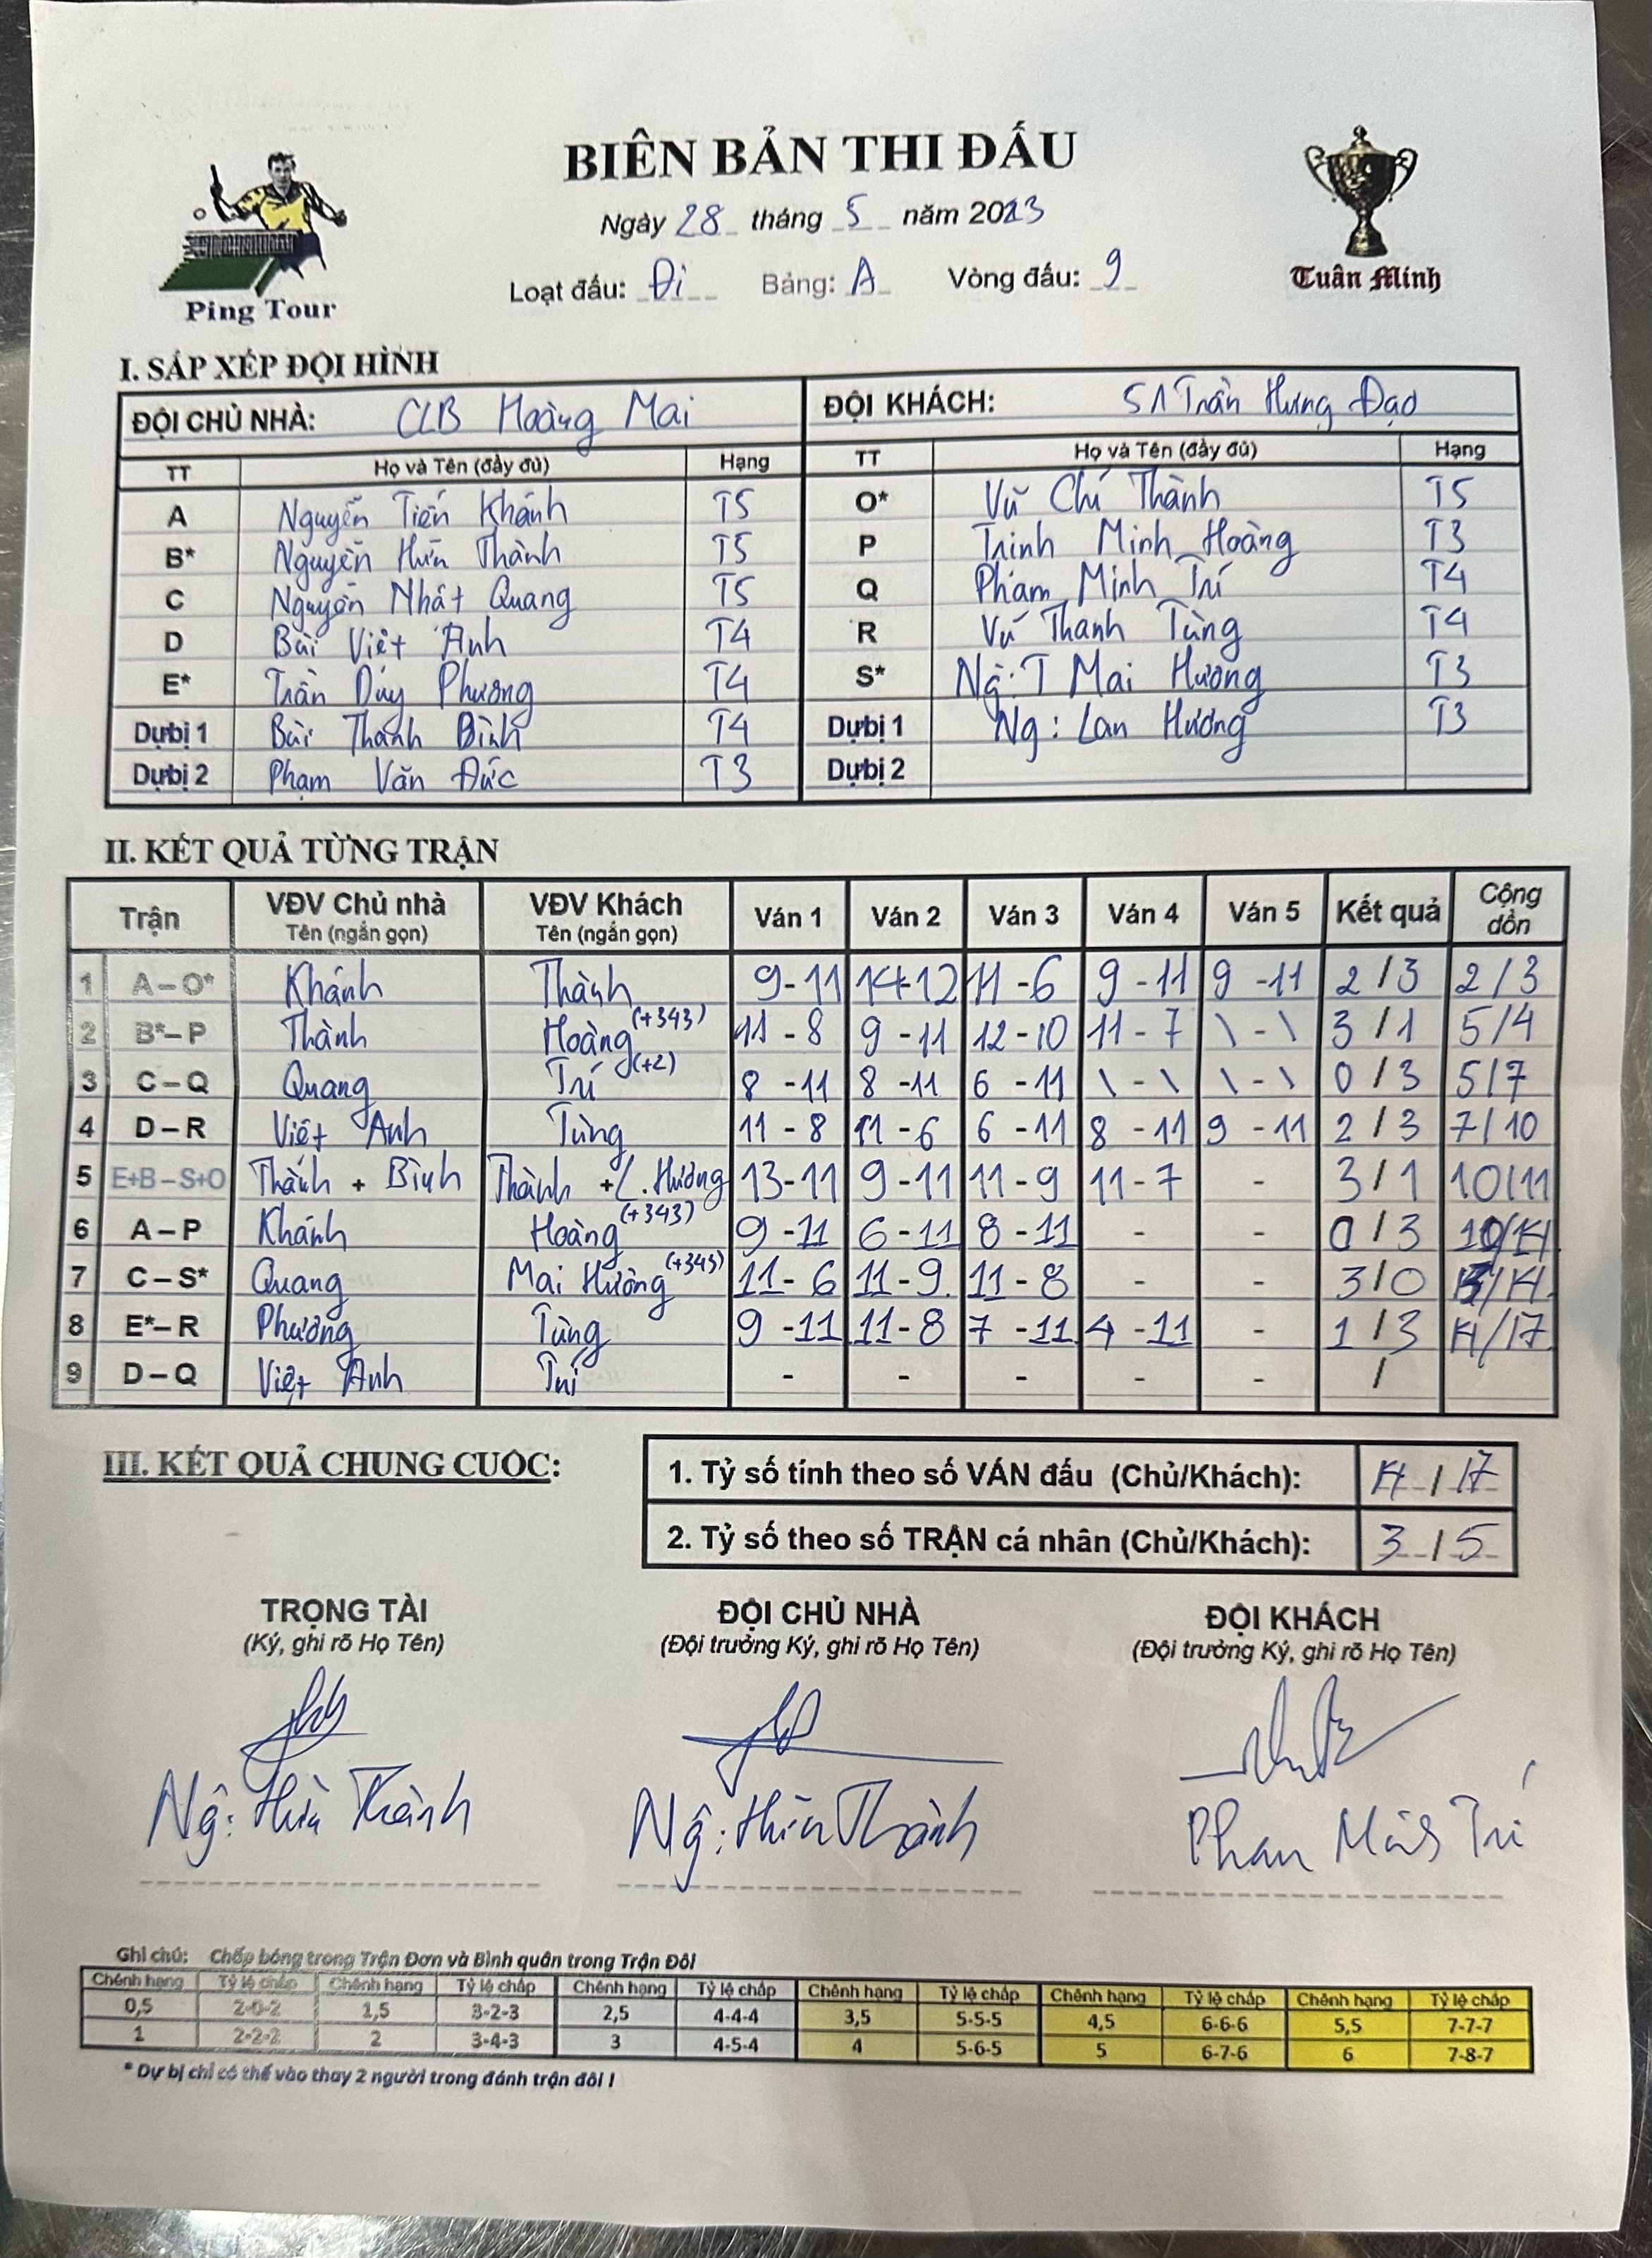 BIÊN BẢN THI ĐẤU
Ngày 28 tháng 5 năm 2023
Loạt đấu: Đi Bảng: A Vòng đấu: 9
Ping Tour
Tuân Minh
I. SẮP XẾP ĐỘI HÌNH
ĐỘI CHỦ NHÀ: CLB Hoàng Mai ĐỘI KHÁCH: 51 Trần Hưng Đạo
TT Họ và Tên (đầy đủ) Hạng TT Họ và Tên (đầy đủ) Hạng
A Nguyễn Tiến Khánh T5 O* Vũ Chí Thành T5
B* Nguyễn Hữu Thành T5 P Trinh Minh Hoàng T3
C Nguyễn Nhật Quang T5 Q Phạm Minh Trí T4
D Bùi Việt Anh T4 R Vũ Thanh Tùng T4
E* Trần Duy Phương T4 S* Ng: T Mai Hương T3
Dự bị 1 Bùi Thanh Bình T4 Dự bị 1 Ng: Lan Hương T3
Dự bị 2 Phạm Văn Đức T3 Dự bị 2
II. KẾT QUẢ TỪNG TRẬN
Trận VĐV Chủ nhà Tên (ngắn gọn) VĐV Khách Tên (ngắn gọn) Ván 1 Ván 2 Ván 3 Ván 4 Ván 5 Kết quả Cộng dồn
1 A – O* Khánh Thành 9-11 14-12 11-6 9-11 9-11 2/3 2/3
2 B* – P Thành Hoàng (+343) 11-8 9-11 12-10 11-7 \-\ 3/1 5/4
3 C – Q Quang Trí (+2) 8-11 8-11 6-11 \-\ \-\ 0/3 5/7
4 D – R Việt Anh Tùng 11-8 11-6 6-11 8-11 9-11 2/3 7/10
5 E+B – S+O Thành + Bình Thành + L. Hương 13-11 9-11 11-9 11-7 - 3/1 10/11
6 A – P Khánh Hoàng (+343) 9-11 6-11 8-11 - - 0/3 10/14
7 C – S* Quang Mai Hương (+343) 11-6 11-9 11-8 - - 3/0 13/14
8 E* – R Phương Tùng 9-11 11-8 7-11 4-11 - 1/3 14/17
9 D – Q Việt Anh Trí - - - - - /
III. KẾT QUẢ CHUNG CUỘC:
1. Tỷ số tính theo số VÁN đấu (Chủ/Khách): 14/17
2. Tỷ số theo số TRẬN cá nhân (Chủ/Khách): 3/5
TRỌNG TÀI ĐỘI CHỦ NHÀ ĐỘI KHÁCH
(Ký, ghi rõ Họ Tên) (Đội trưởng Ký, ghi rõ Họ Tên) (Đội trưởng Ký, ghi rõ Họ Tên)
Ng: Hữu Thành Ng: Hữu Thành Phạm Minh Trí
Ghi chú: Chấp bóng trong Trận Đơn và Bình quân trong Trận Đôi
Chênh hạng Tỷ lệ chấp Chênh hạng Tỷ lệ chấp Chênh hạng Tỷ lệ chấp Chênh hạng Tỷ lệ chấp Chênh hạng Tỷ lệ chấp Chênh hạng Tỷ lệ chấp
0,5 2-0-2 1,5 3-2-3 2,5 4-4-4 3,5 5-5-5 4,5 6-6-6 5,5 7-7-7
1 2-2-2 2 3-4-3 3 4-5-4 4 5-6-5 5 6-7-6 6 7-8-7
* Dự bị chỉ có thể vào thay 2 người trong đánh trận đôi !